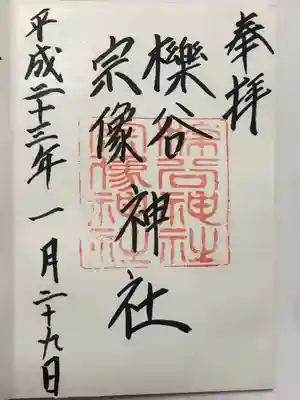 奉拝
櫟谷
宗像神社
平成二十三年一月二十九日
櫟谷神社
宗像神社